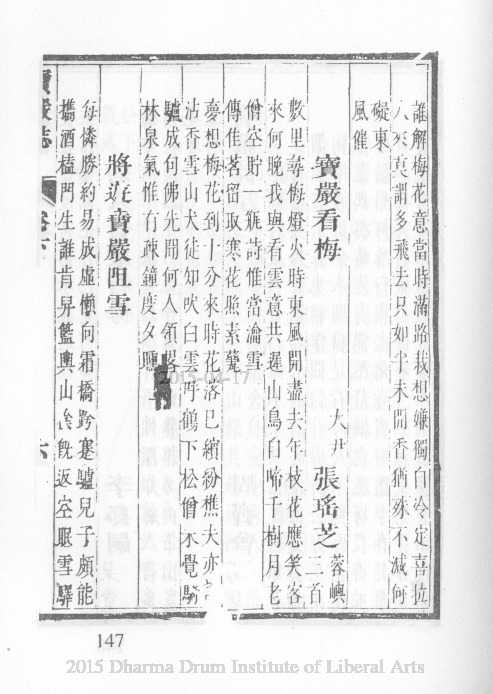 誰解梅花意當時滿路我想嫌獨自冷定喜位
人來莫謂多飛去只如半未開香猶殊不減何
礙東
風催
寶嚴看梅
大井 張瑤芝 蓉嶼 三首
數里尋梅燈火時東風開盡去年枝花應笑客
來何晚我與看雲意共遲山鳥自啼千樹月老
僧空貯一瓻詩惟當瀹雪
傳佳茗留取寒花照素甆
夢想梅花到十分來時花落已繽紛樵夫亦
沾香雪山犬徒知吠白雲呼鶴下松僧不覺騎
驢成句佛光聞何人領畧
林泉氣惟有疎鐘度夕曛
將遊寶嚴阻雪
每憐勝約易成虛懶向霜橋跨蹇驢兒子頗能
攜酒榼門生誰肯舁籃輿山陰旣返空眠雪驛
寶嚴誌 卷下
2015-04-17
147
2015 Dharma Drum Institute of Liberal Arts